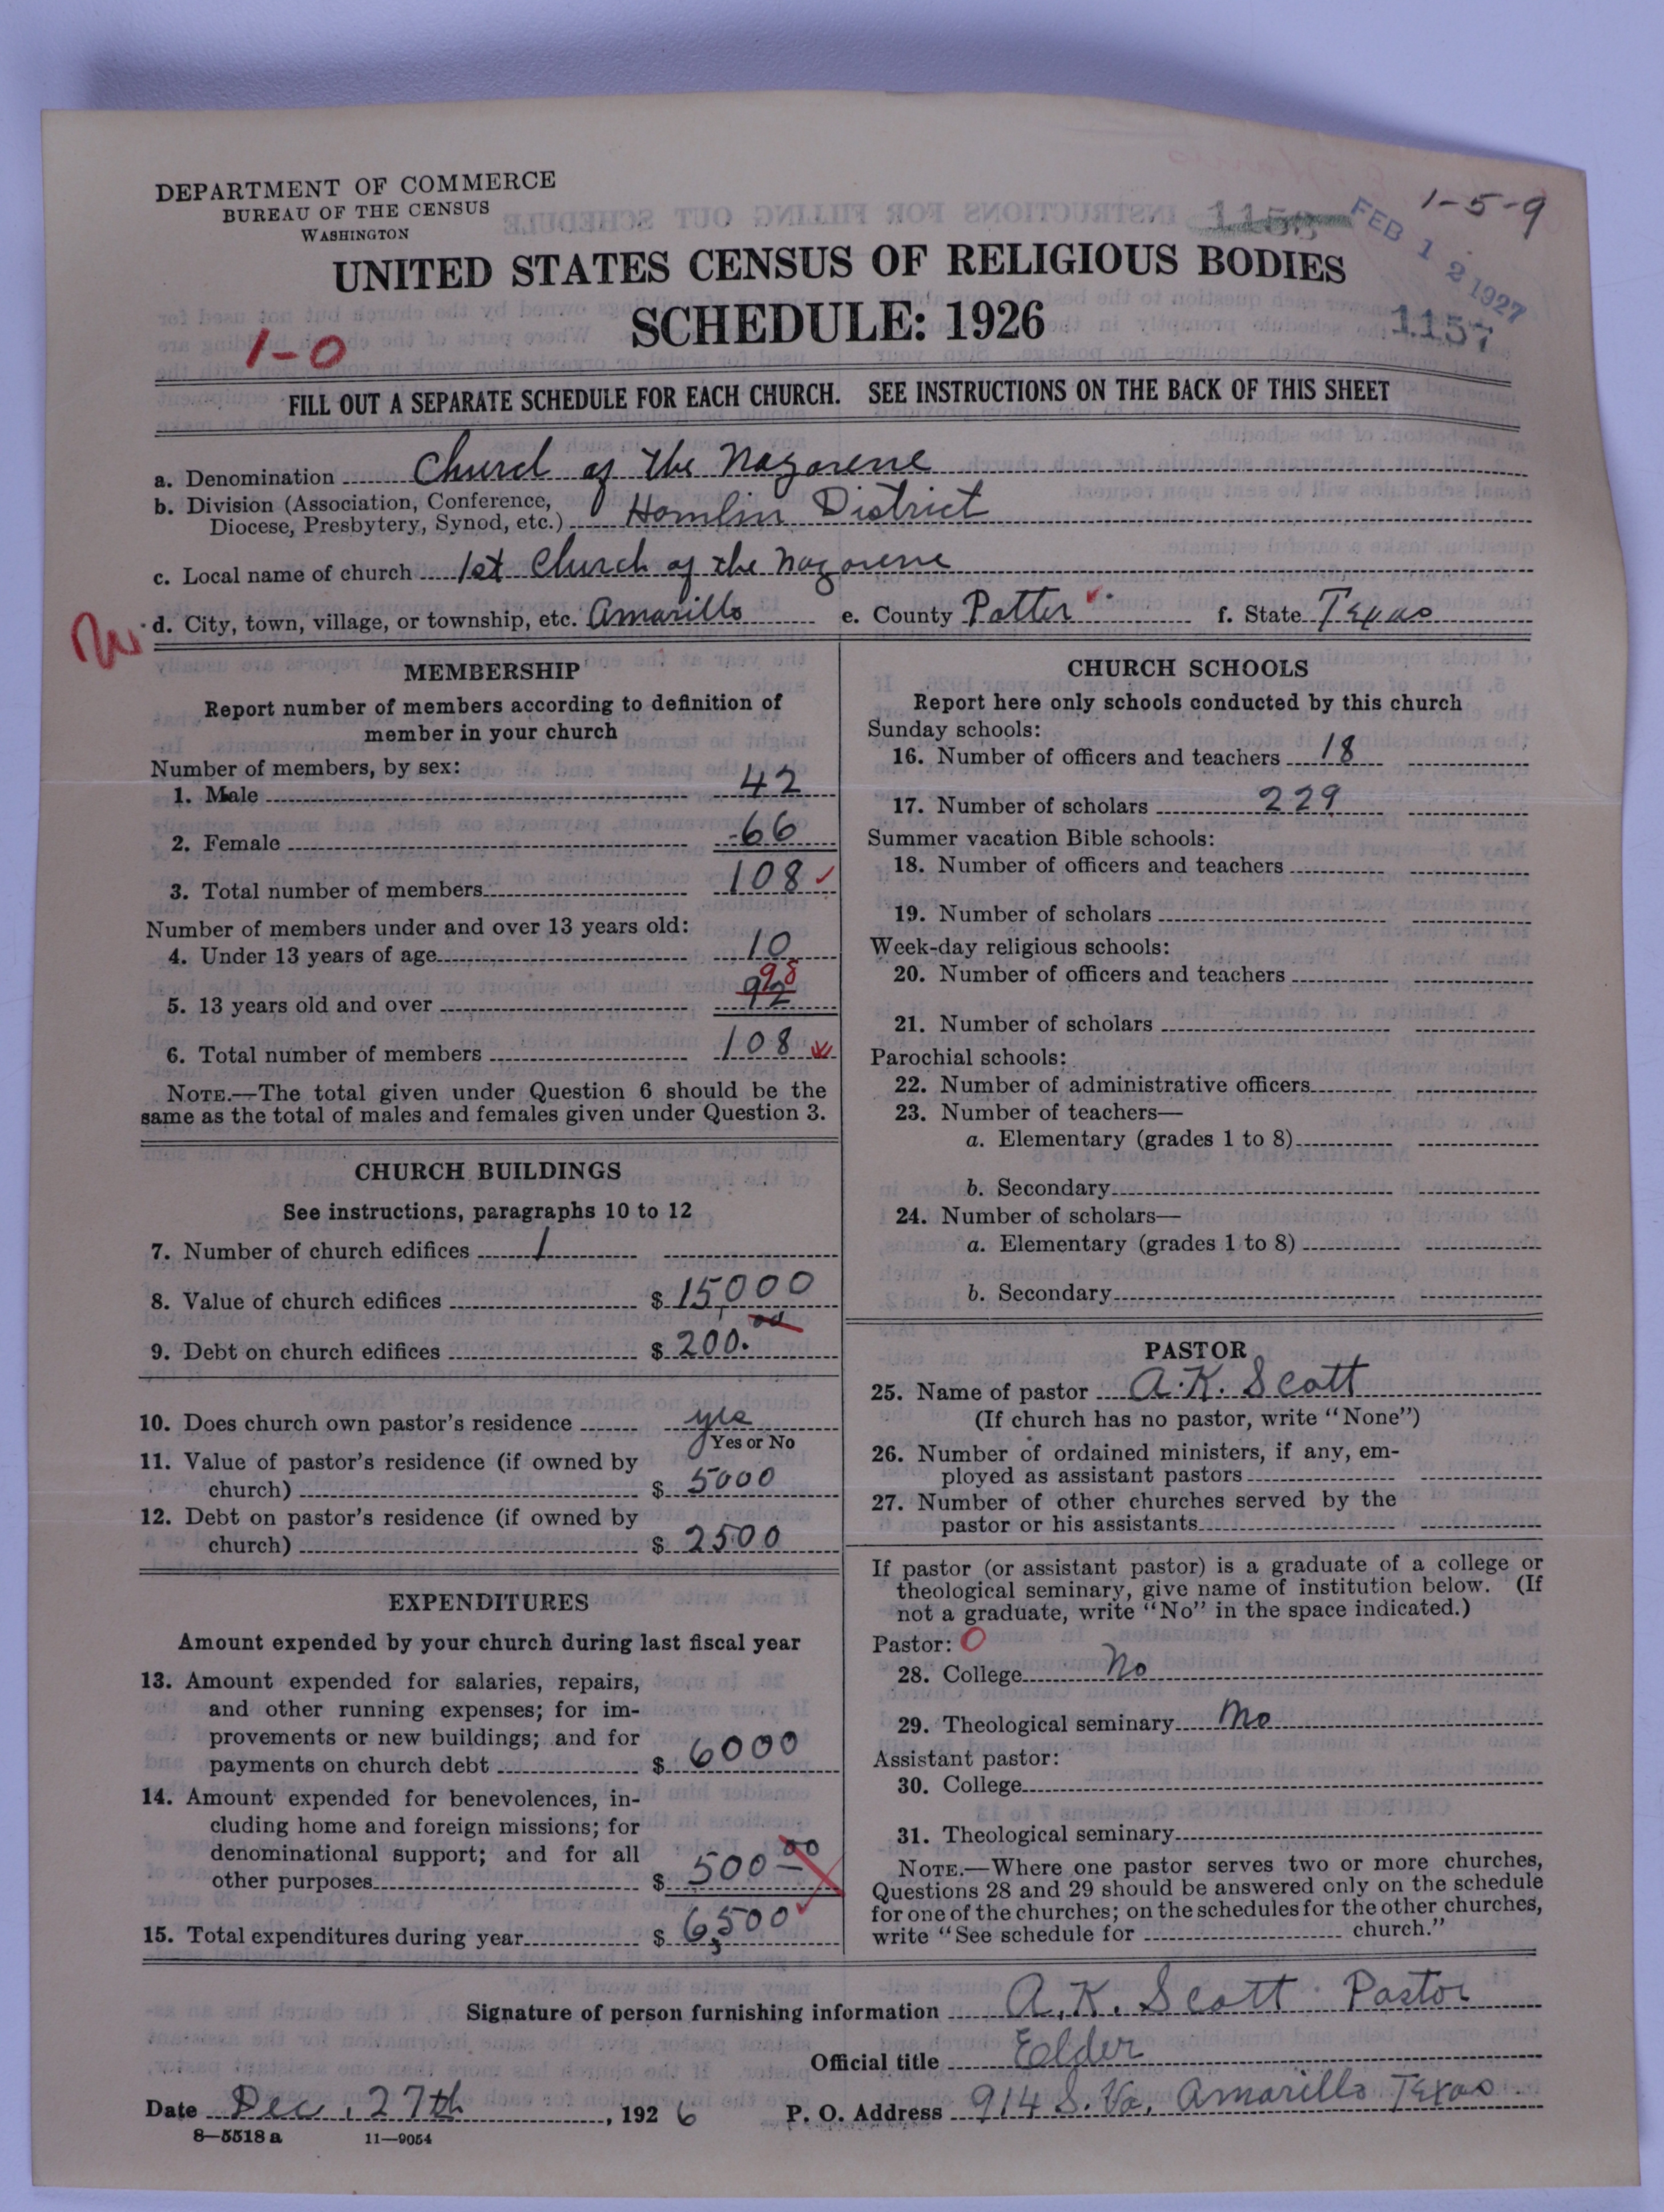 DEPARTMENT OF COMMERCE
BUREAU OF THE CENSUS
WASHINGTON
1-5-9
1158
FEB 12 1927
UNITED STATES CENSUS OF RELIGIOUS BODIES
SCHEDULE: 1926
1157
1-0
FILL OUT A SEPARATE SCHEDULE FOR EACH CHURCH. SEE INSTRUCTIONS ON THE BACK OF THIS SHEET
a. Denomination Church of the Nazarene
b. Division (Association, Conference,
Diocese, Presbytery, Synod, etc.) Hamlin District
c. Local name of church 1st Church of the Nazarene
d. City, town, village, or township, etc. Amarillo e. County Potter f. State Texas
MEMBERSHIP
Report number of members according to definition of
member in your church
Number of members, by sex:
1. Male 42
2. Female 66
3. Total number of members 108
Number of members under and over 13 years old:
4. Under 13 years of age 10
98
5. 13 years old and over 92
6. Total number of members 108
NOTE.—The total given under Question 6 should be the
same as the total of males and females given under Question 3.
CHURCH BUILDINGS
See instructions, paragraphs 10 to 12
7. Number of church edifices 1
8. Value of church edifices $ 15,000
9. Debt on church edifices $ 200.00
10. Does church own pastor's residence yes
Yes or No
11. Value of pastor's residence (if owned by
church) $ 5000
12. Debt on pastor's residence (if owned by
church) $ 2500
EXPENDITURES
Amount expended by your church during last fiscal year
13. Amount expended for salaries, repairs,
and other running expenses; for im-
provements or new buildings; and for
payments on church debt $ 6000
14. Amount expended for benevolences, in-
cluding home and foreign missions; for
denominational support; and for all
other purposes $ 500 00
15. Total expenditures during year $ 6,500
CHURCH SCHOOLS
Report here only schools conducted by this church
Sunday schools:
16. Number of officers and teachers 18
17. Number of scholars 229
Summer vacation Bible schools:
18. Number of officers and teachers
19. Number of scholars
Week-day religious schools:
20. Number of officers and teachers
21. Number of scholars
Parochial schools:
22. Number of administrative officers
23. Number of teachers—
a. Elementary (grades 1 to 8)
b. Secondary
24. Number of scholars—
a. Elementary (grades 1 to 8)
b. Secondary
PASTOR
25. Name of pastor A. K. Scott
(If church has no pastor, write "None")
26. Number of ordained ministers, if any, em-
ployed as assistant pastors
27. Number of other churches served by the
pastor or his assistants
If pastor (or assistant pastor) is a graduate of a college or
theological seminary, give name of institution below. (If
not a graduate, write "No" in the space indicated.)
Pastor: 0
28. College No
29. Theological seminary No
Assistant pastor:
30. College
31. Theological seminary
NOTE.—Where one pastor serves two or more churches,
Questions 28 and 29 should be answered only on the schedule
for one of the churches; on the schedules for the other churches,
write "See schedule for church."
Signature of person furnishing information A. K. Scott Pastor
Official title Elder
Date Dec. 27th, 1926 P. O. Address 914 S. Va. Amarillo Texas
8—5518 a 11—9054